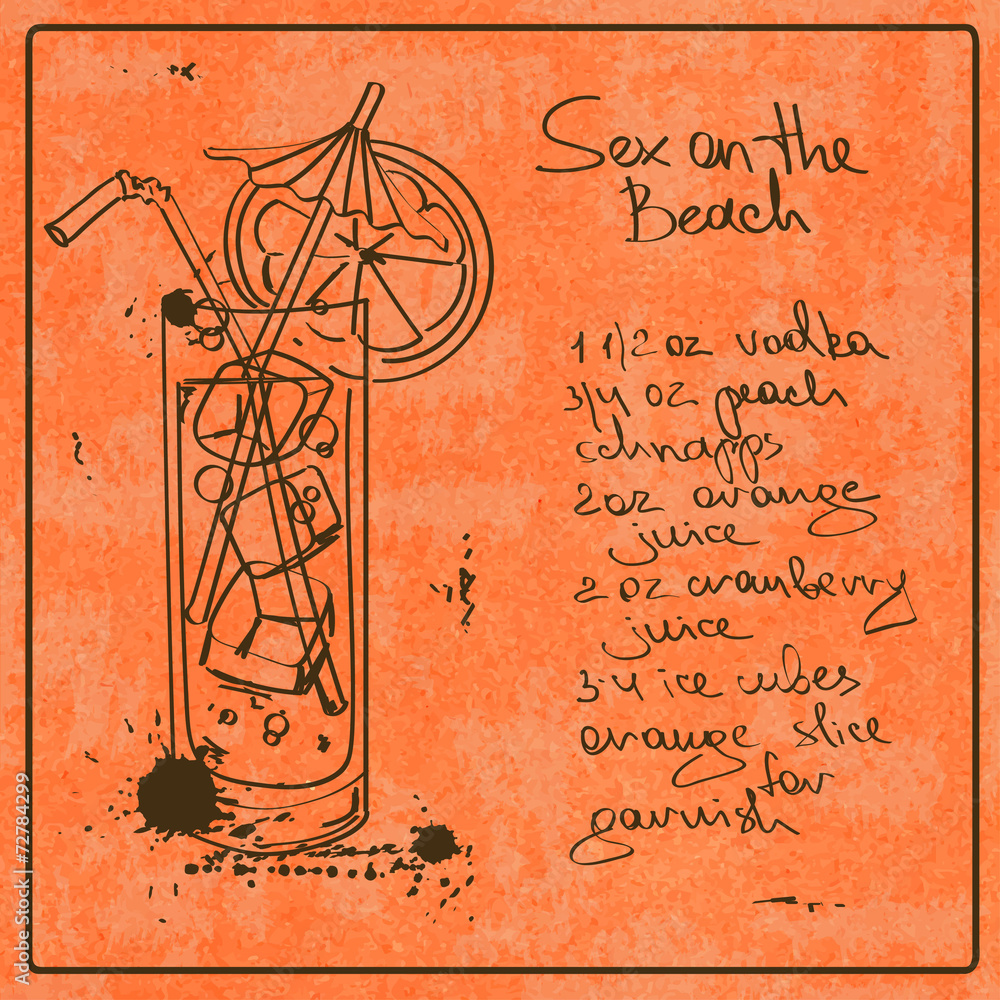 Sex on the
Beach
1 1/2 oz vodka
3/4 oz peach
schnapps
2oz orange
juice
2 oz cranberry
juice
3-4 ice cubes
orange slice
for
garnish
Adobe Stock | #72784299